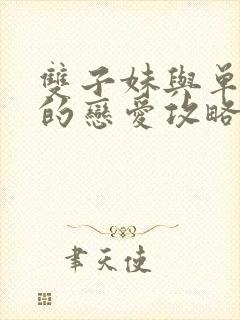 雙子妹與單
的戀愛攻略
聿天使